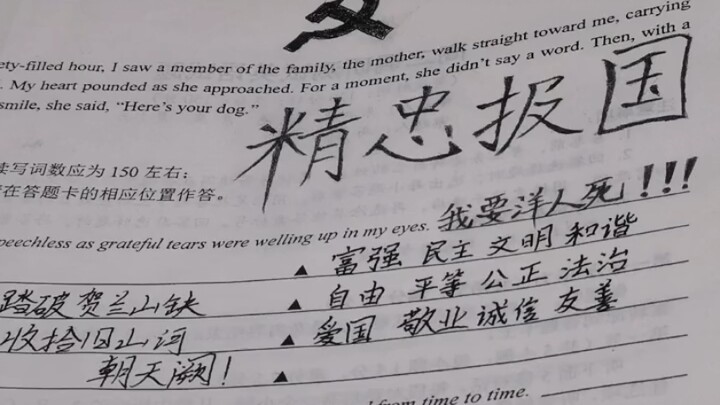 ety-filled hour, I saw a member of the family, the mother, walk straight toward me, carrying
. My heart pounded as she approached. For a moment, she didn't say a word. Then, with a
smile, she said, “Here's your dog.”
精忠报国
读写词数应为 150 左右；
在答题卡的相应位置作答。
我要洋人死！！！
peechless as grateful tears were welling up in my eyes.
▲ 富强 民主 文明 和谐
踏破贺兰山缺 ▲ 自由 平等 公正 法治
收拾旧山河 ▲ 爱国 敬业 诚信 友善
朝天阙！ ▲
from time to time.